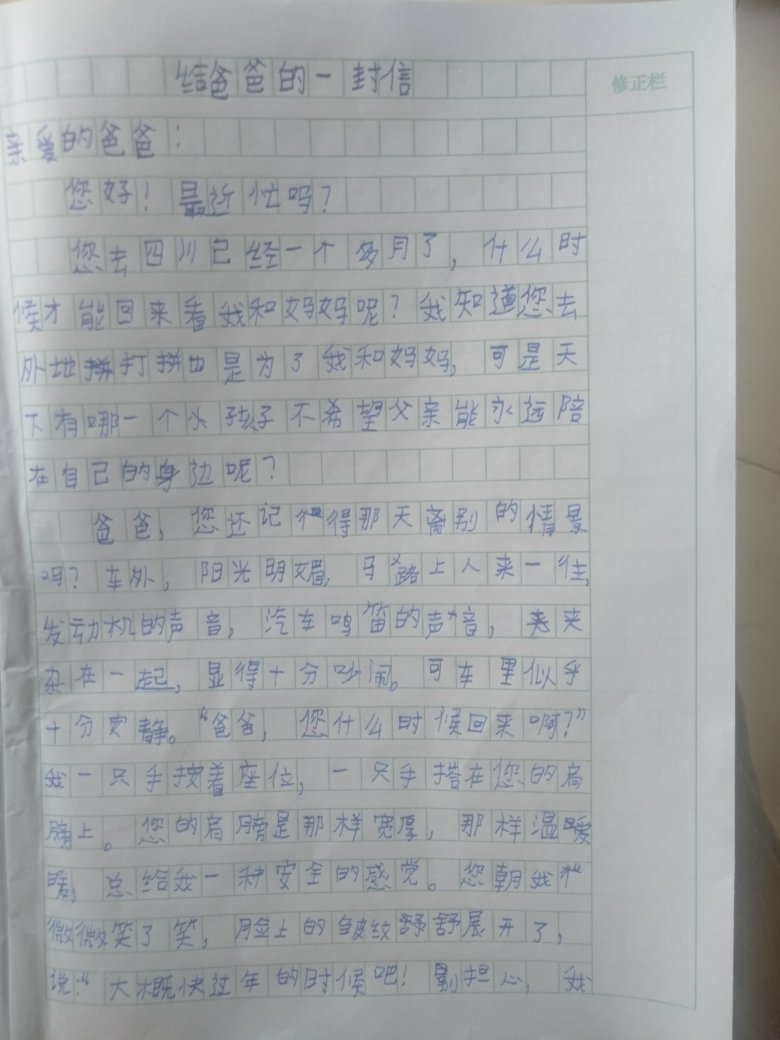 给爸爸的一封信
修正栏
亲爱的爸爸：
您好！最近忙吗？
您去四川已经一个多月了，什么时
候才能回来看我和妈妈呢？我知道您去
外地打拼也是为了我和妈妈，可是天
下有哪一个小孩子不希望父亲能永远陪
在自己的身边呢？
爸爸，您还记得那天离别的情景
吗？车外，阳光明媚，马路上人来一往，
发动机的声音，汽车鸣笛的声音，夹
杂在一起，显得十分吵闹。可车里似乎
十分安静。“爸爸，您什么时候回来啊？”
我一只手按着座位，一只手搭在您的肩
膀上。您的肩膀是那样宽厚，那样温暖
暖，总给我一种安全的感觉。您朝我
微微笑了笑，脸上的皱纹舒展开了，
说：“大概快过年的时候吧！别担心，我